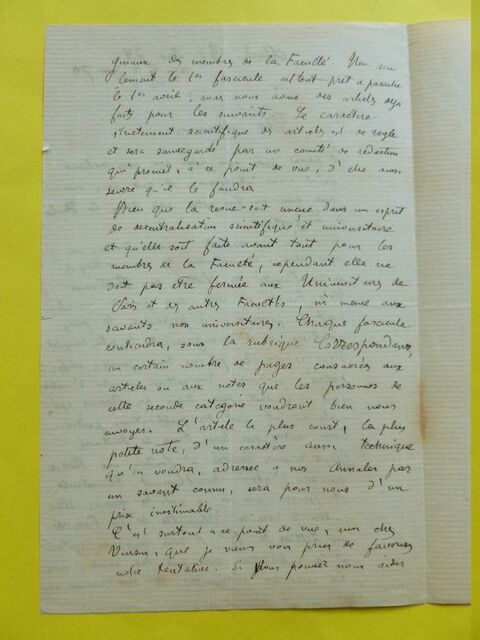 ginaux des membres de la Faculté. Non seu
lement le 1er fascicule est tout prêt a paraitre
le 1er avril ; mais nous avons des articles déjà
faits pour les suivants. Le caractère
strictement scientifique des articles est de règle
et sera sauvegardé par un comité de rédaction
qui promet, à ce point de vue, d'être aussi
sévère qu'il le faudra
Bien que la revue soit conçue dans un esprit
de décentralisation scientifique et universitaire
et qu'elle soit faite avant tout pour les
membres de la Faculté, cependant elle ne
doit pas être fermée aux Universitaires de
Paris et des autres Facultés, ni même aux
savants non universitaires. Chaque fascicule
contiendra, sous la rubrique Correspondance,
un certain nombre de pages consacrées aux
articles ou aux notes que les personnes de
cette seconde catégorie voudront bien nous
envoyer. L'article le plus court, la plus
petite note, d'un caractère aussi technique
qu'on voudra, adressée a nos Annales par
un savant connu, sera pour nous d'un
prix inestimable.
C'est surtout a ce point de vue, mon cher
que je viens vous prier de favoriser
notre tentative. Si vous pouvez nous aider